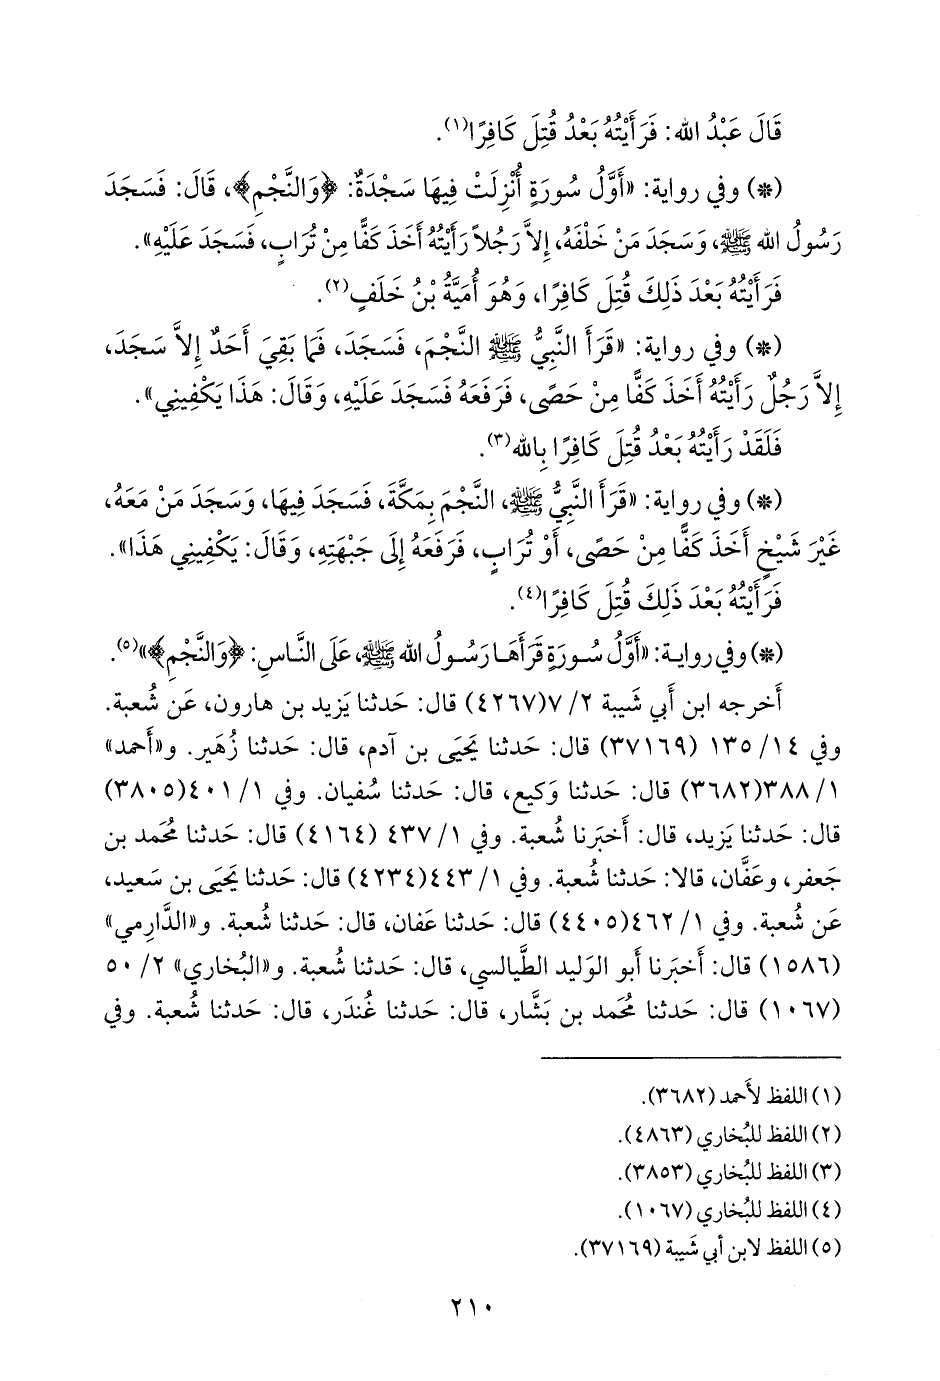 قَالَ عَبْدُ الله: فَرَأَيْتُهُ بَعْدُ قُتِلَ كَافِرًا(١).
(*) وفي رواية: «أَوَّلُ سُورَةٍ أُنْزِلَتْ فِيهَا سَجْدَةٌ: ﴿وَالنَّجْمِ﴾، قَالَ: فَسَجَدَ
رَسُولُ الله ﷺ، وَسَجَدَ مَنْ خَلْفَهُ، إِلاَّ رَجُلاً رَأَيْتُهُ أَخَذَ كَفًّا مِنْ تُرَابٍ، فَسَجَدَ عَلَيْهِ».
فَرَأَيْتُهُ بَعْدَ ذَلِكَ قُتِلَ كَافِرًا، وَهُوَ أُمَيَّةُ بْنُ خَلَفٍ(٢).
(*) وفي رواية: «قَرَأَ النَّبِيُّ ﷺ النَّجْمَ، فَسَجَدَ، فَمَا بَقِيَ أَحَدٌ إِلاَّ سَجَدَ،
إِلاَّ رَجُلٌ رَأَيْتُهُ أَخَذَ كَفًّا مِنْ حَصًى، فَرَفَعَهُ فَسَجَدَ عَلَيْهِ، وَقَالَ: هَذَا يَكْفِينِي».
فَلَقَدْ رَأَيْتُهُ بَعْدُ قُتِلَ كَافِرًا بِالله(٣).
(*) وفي رواية: «قَرَأَ النَّبِيُّ ﷺ، النَّجْمَ بِمَكَّةَ، فَسَجَدَ فِيهَا، وَسَجَدَ مَنْ مَعَهُ،
غَيْرَ شَيْخٍ أَخَذَ كَفًّا مِنْ حَصًى، أَوْ تُرَابٍ، فَرَفَعَهُ إِلَى جَبْهَتِهِ، وَقَالَ: يَكْفِينِي هَذَا».
فَرَأَيْتُهُ بَعْدَ ذَلِكَ قُتِلَ كَافِرًا(٤).
(*) وفي رواية: «أَوَّلُ سُورَةٍ قَرَأَهَا رَسُولُ الله ﷺ، عَلَى النَّاسِ: ﴿وَالنَّجْمِ﴾»(٥).
أَخرجه ابن أَبي شَيبة ٢/ ٧(٤٢٦٧) قال: حَدثنا يَزيد بن هارون، عَن شُعبة.
وفي ١٤/ ١٣٥ (٣٧١٦٩) قال: حَدثنا يَحيَى بن آدم، قال: حَدثنا زُهَير. و«أَحمد»
١/ ٣٨٨(٣٦٨٢) قال: حَدثنا وَكيع، قال: حَدثنا سُفيان. وفي ١/ ٤٠١(٣٨٠٥)
قال: حَدثنا يَزيد، قال: أَخبَرنا شُعبة. وفي ١/ ٤٣٧ (٤١٦٤) قال: حَدثنا مُحَمد بن
جَعفر، وعَفَّان، قالا: حَدثنا شُعبة. وفي ١/ ٤٤٣(٤٢٣٤) قال: حَدثنا يَحيَى بن سَعيد،
عَن شُعبة. وفي ١/ ٤٦٢(٤٤٠٥) قال: حَدثنا عَفان، قال: حَدثنا شُعبة. و«الدَّارِمي»
(١٥٨٦) قال: أَخبَرنا أَبو الوَليد الطَّيالسي، قال: حَدثنا شُعبة. و«البُخاري» ٢/ ٥٠
(١٠٦٧) قال: حَدثنا مُحَمد بن بَشَّار، قال: حَدثنا غُندَر، قال: حَدثنا شُعبة. وفي
(١) اللفظ لأَحمد (٣٦٨٢).
(٢) اللفظ للبُخاري (٤٨٦٣).
(٣) اللفظ للبُخاري (٣٨٥٣).
(٤) اللفظ للبُخاري (١٠٦٧).
(٥) اللفظ لابن أَبي شَيبة (٣٧١٦٩).
٢١٠